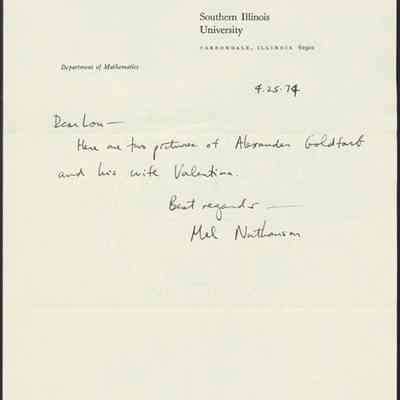 Southern Illinois
University
CARBONDALE, ILLINOIS 62901
Department of Mathematics
4.25.74
Dear Lou—
Here are two pictures of Alexander Goldfarb
and his wife Valentina.
Best regards —
Mel Nathanson